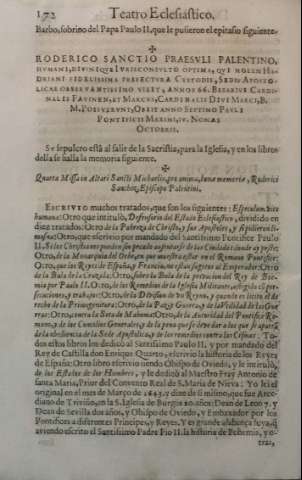 172 Teatro Eclesiastico,
Barbo, sobrino del Papa Paulo II, que le pusieron el epitafio siguiente.
RODERICO SANCTIO PRAESVLI PALENTINO,
HVMANI, DIVINIQVE IVRISCONSVLTO OPTIMO, QVI MOLEM HA-
DRIANI FIDELISSIMA PRAEFECTVRA CVSTODIT, SEDI APOSTO-
LICAE OBSERVANTISSIMO VIXIT, ANNOS 66. BESARIVS CARDI-
NALIS ET MARCVS, CARDINALIS DIVI MARCI, B.
M. POSVERVNT, OBIIT ANNO SEPTIMO PAVLI
PONTIFICIS MAXIMI, IV. NONAS
OCTOBRIS.
Su sepulcro està al salir de la Sacristia, para la Iglesia, y en los libros
della se halla la memoria siguiente.
Quarta Missa in Altari Sancti Michaelis, pro anima, bonæ memoriæ, Roderici
Sanchez, Episcopo Palentini.
ESCRIVIO muchos tratados, que son los siguientes: Especulum vitæ
humanæ: Otro que intitulò, Defensorio del Estado Eclesiastico, dividido en
diez tratados: Otro de la Pobreza de Christo, y sus Apostoles, y si pidieron li-
mosna: Otro, que escrivio por mandado del Santissimo Pontifice Paulo
II. Si los Christianos pueden sin pecado apartarse de las Ciudades donde ay peste:
Otro, de la Monarquia del Orbe, en que muestra estar en el Romano Pontifice:
Otro, que los Reyes de España, y Francia, no estan sugetos al Emperador: Otro
de la Bula de la Cruzada: Otro, sobre la Bula de la privacion del Rey de Boe-
mia por Paulo II. Otro, de los Remedios de la Iglesia Militante, afligida cõ per-
secuciones, y trabajos: Otro,
recho de la Otro, de la Paz, y Guerra, y de la
rra: Otro, contra la Seta de Mahoma: Otro, de la Autoridad del Pontifice Ro-
mano, y de los Concilios Generales, y de la pena que se deve dar a los que se aparta
de la obediencia de la Sede Apostolica, y de los remedios contra las Cismas: To-
dos estos libros los dedicò al Santissimo Paulo II. y por mandado del
Rey de Castilla don Enrique Quarto, escrivio la historia de los Reyes
de España: Otro libro escrivio siendo Obispo de Oviedo, y le intitulò,
de los Estados de los Hombres, y le dedicò al Maestro Fray Antonio de
santa Maria, Prior del Convento Real de S. Maria de Nieva: Yo leí el
original en el mes de Março de 1643. y dize de si mismo, que fue Arce-
diano de Triviño, en la S. Iglesia de Burgos 20. años: Dean de Leon 7. y
Dean de Sevilla dos años, y Obispo de Oviedo, y Embaxador por los
Pontifices a diferentes Principes, y Reyes. Y es grande alabança suya, q̃
aviendo escrito el Santissimo Padre Pio II. la historia de Bohemia, y o-
tras,